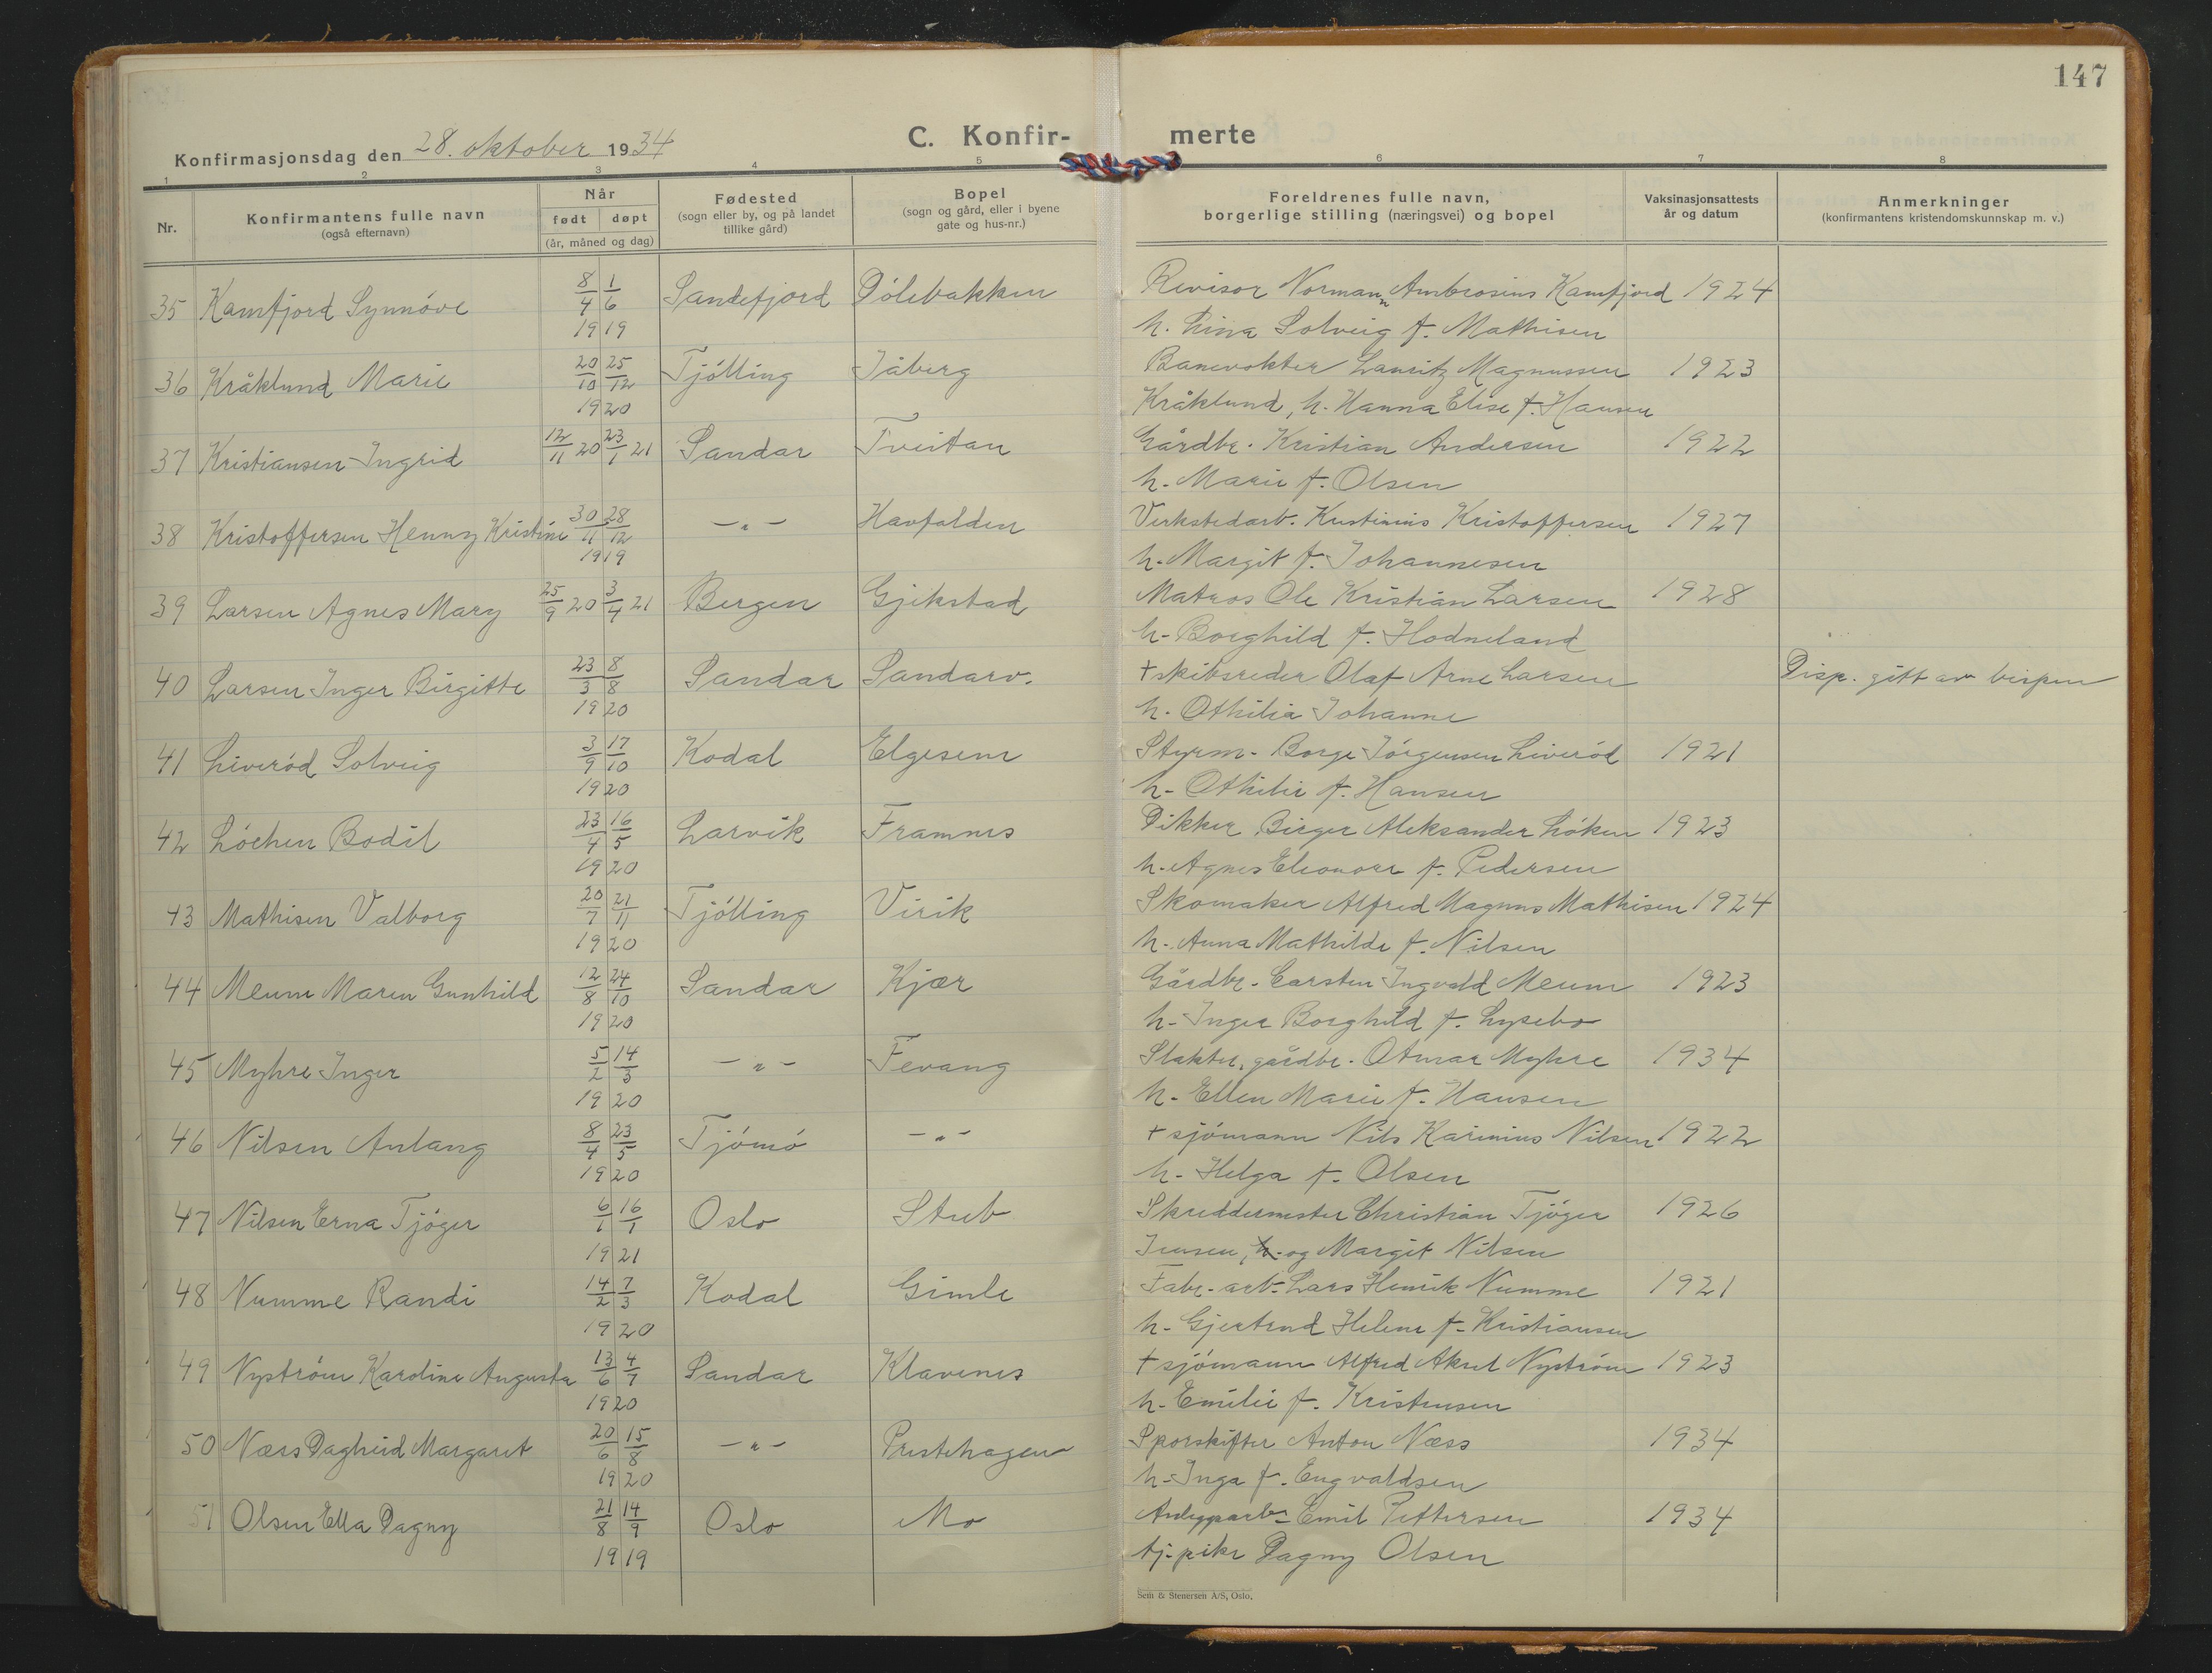 147
Konfirmasjonsdag den 28. oktober 1934
C. Konfir- merte
1 2 3 4 5 6 7 8
Nr.
Konfirmantens fulle navn
(også efternavn)
Når
født døpt
(år, måned og dag)
Fødested
(sogn eller by, og på landet
tillike gård)
Bopel
(sogn og gård, eller i byene
gate og hus-nr.)
Foreldrenes fulle navn,
borgerlige stilling (næringsvei) og bopel
Vaksinasjonsattests
år og datum
Anmerkninger
(konfirmantens kristendomskunnskap m. v.)
35 Kamfjord Synnóve 8/4 1/6 Sandefjord Dólebakken Revisor Normann Ambrosius Kamfjord 1924
1919 h. Lina Solveig f. Mathisen
36 Kråklund Marie 20/10 25/12 Tjólling Jåberg Banevokter Lauritz Magnussen 1923
1920 Kråklund, h. Hanna Elise f. Hansen
37 Kristiansen Ingrid 12/11 20 23/1 21 Sandar Tveitan Gårdbr. Kristian Andersen 1922
h. Marie f. Olsen
38 Kristoffersen Henny Kristine 30/11 28/12 -"- Havfalden Verkstedarb. Kristoffersen 1927
1919 h. Margit f. Johannesen
39 Larsen Agnes Mary 25/9 20 3/4 21 Bergen Gjekstad Matros Ole Kristian Larsen 1928
h. Borghild f. Hodneland
40 Larsen Inger Birgitte 23/3 8/8 Sandar Sandarv. + skibsreder Olaf Arne Larsen Disp. gitt av bispen
1920 h. Othilia Johanne
41 Liveród Solveig 3/9 17/10 Kodal Elgesem Styrm. Borge Jórgensen Liveród 1921
1920 h. Othilie f. Hansen
42 Lóchen Bodil 23/4 16/5 Larvik Framnes Dikker Birger Aleksander Lóken 1923
1920 h. Agnes Eleonora f. Pedersen
43 Mathisen Valborg 20/7 21/11 Tjólling Virik Skomaker Alfred Magnus Mathisen 1924
1920 h. Anna Mathilde f. Nilsen
44 Meum Maren Gunhild 12/8 24/10 Sandar Kjær Gårdbr. Carsten Ingvald Meum 1923
1920 h. Inger Borghild f. Lysebo
45 Myhre Inger 5/2 14/3 -"- Fevang Slakter, gårdbr. Otmar Myhre 1934
1920 h. Ellen Marie f. Hansen
46 Nilsen Anlaug 8/4 23/5 Tjómó -"- + sjómann Nils Karinius Nilsen 1922
1920 h. Helga f. Olsen
47 Nilsen Erna Tjóger 6/1 16/1 Oslo Stub Skreddermester Christian Tjóger 1926
1921 Jensen, og Margit Nilsen
48 Numme Randi 14/2 7/3 Kodal Gimle Fabr. arb. Lars Henrik Numme 1921
1920 h. Gjertrud Helene f. Kristiansen
49 Nystróm Karoline Augusta 13/6 4/7 Sandar Klavenes + sjómann Alfred Aksel Nystróm 1923
1920 h. Emilie f. Kristensen
50 Næss Dagheid Margaret 20/6 15/8 -"- Prestehagen Sporskifter Anton Næss 1934
1920 h. Inga f. Engvaldsen
51 Olsen Ella Dagny 21/8 14/9 Oslo Mo Anleggsarb. Emil Pettersen 1934
1919 tj. pike Dagny Olsen
Sem & Stenersen A/S, Oslo.